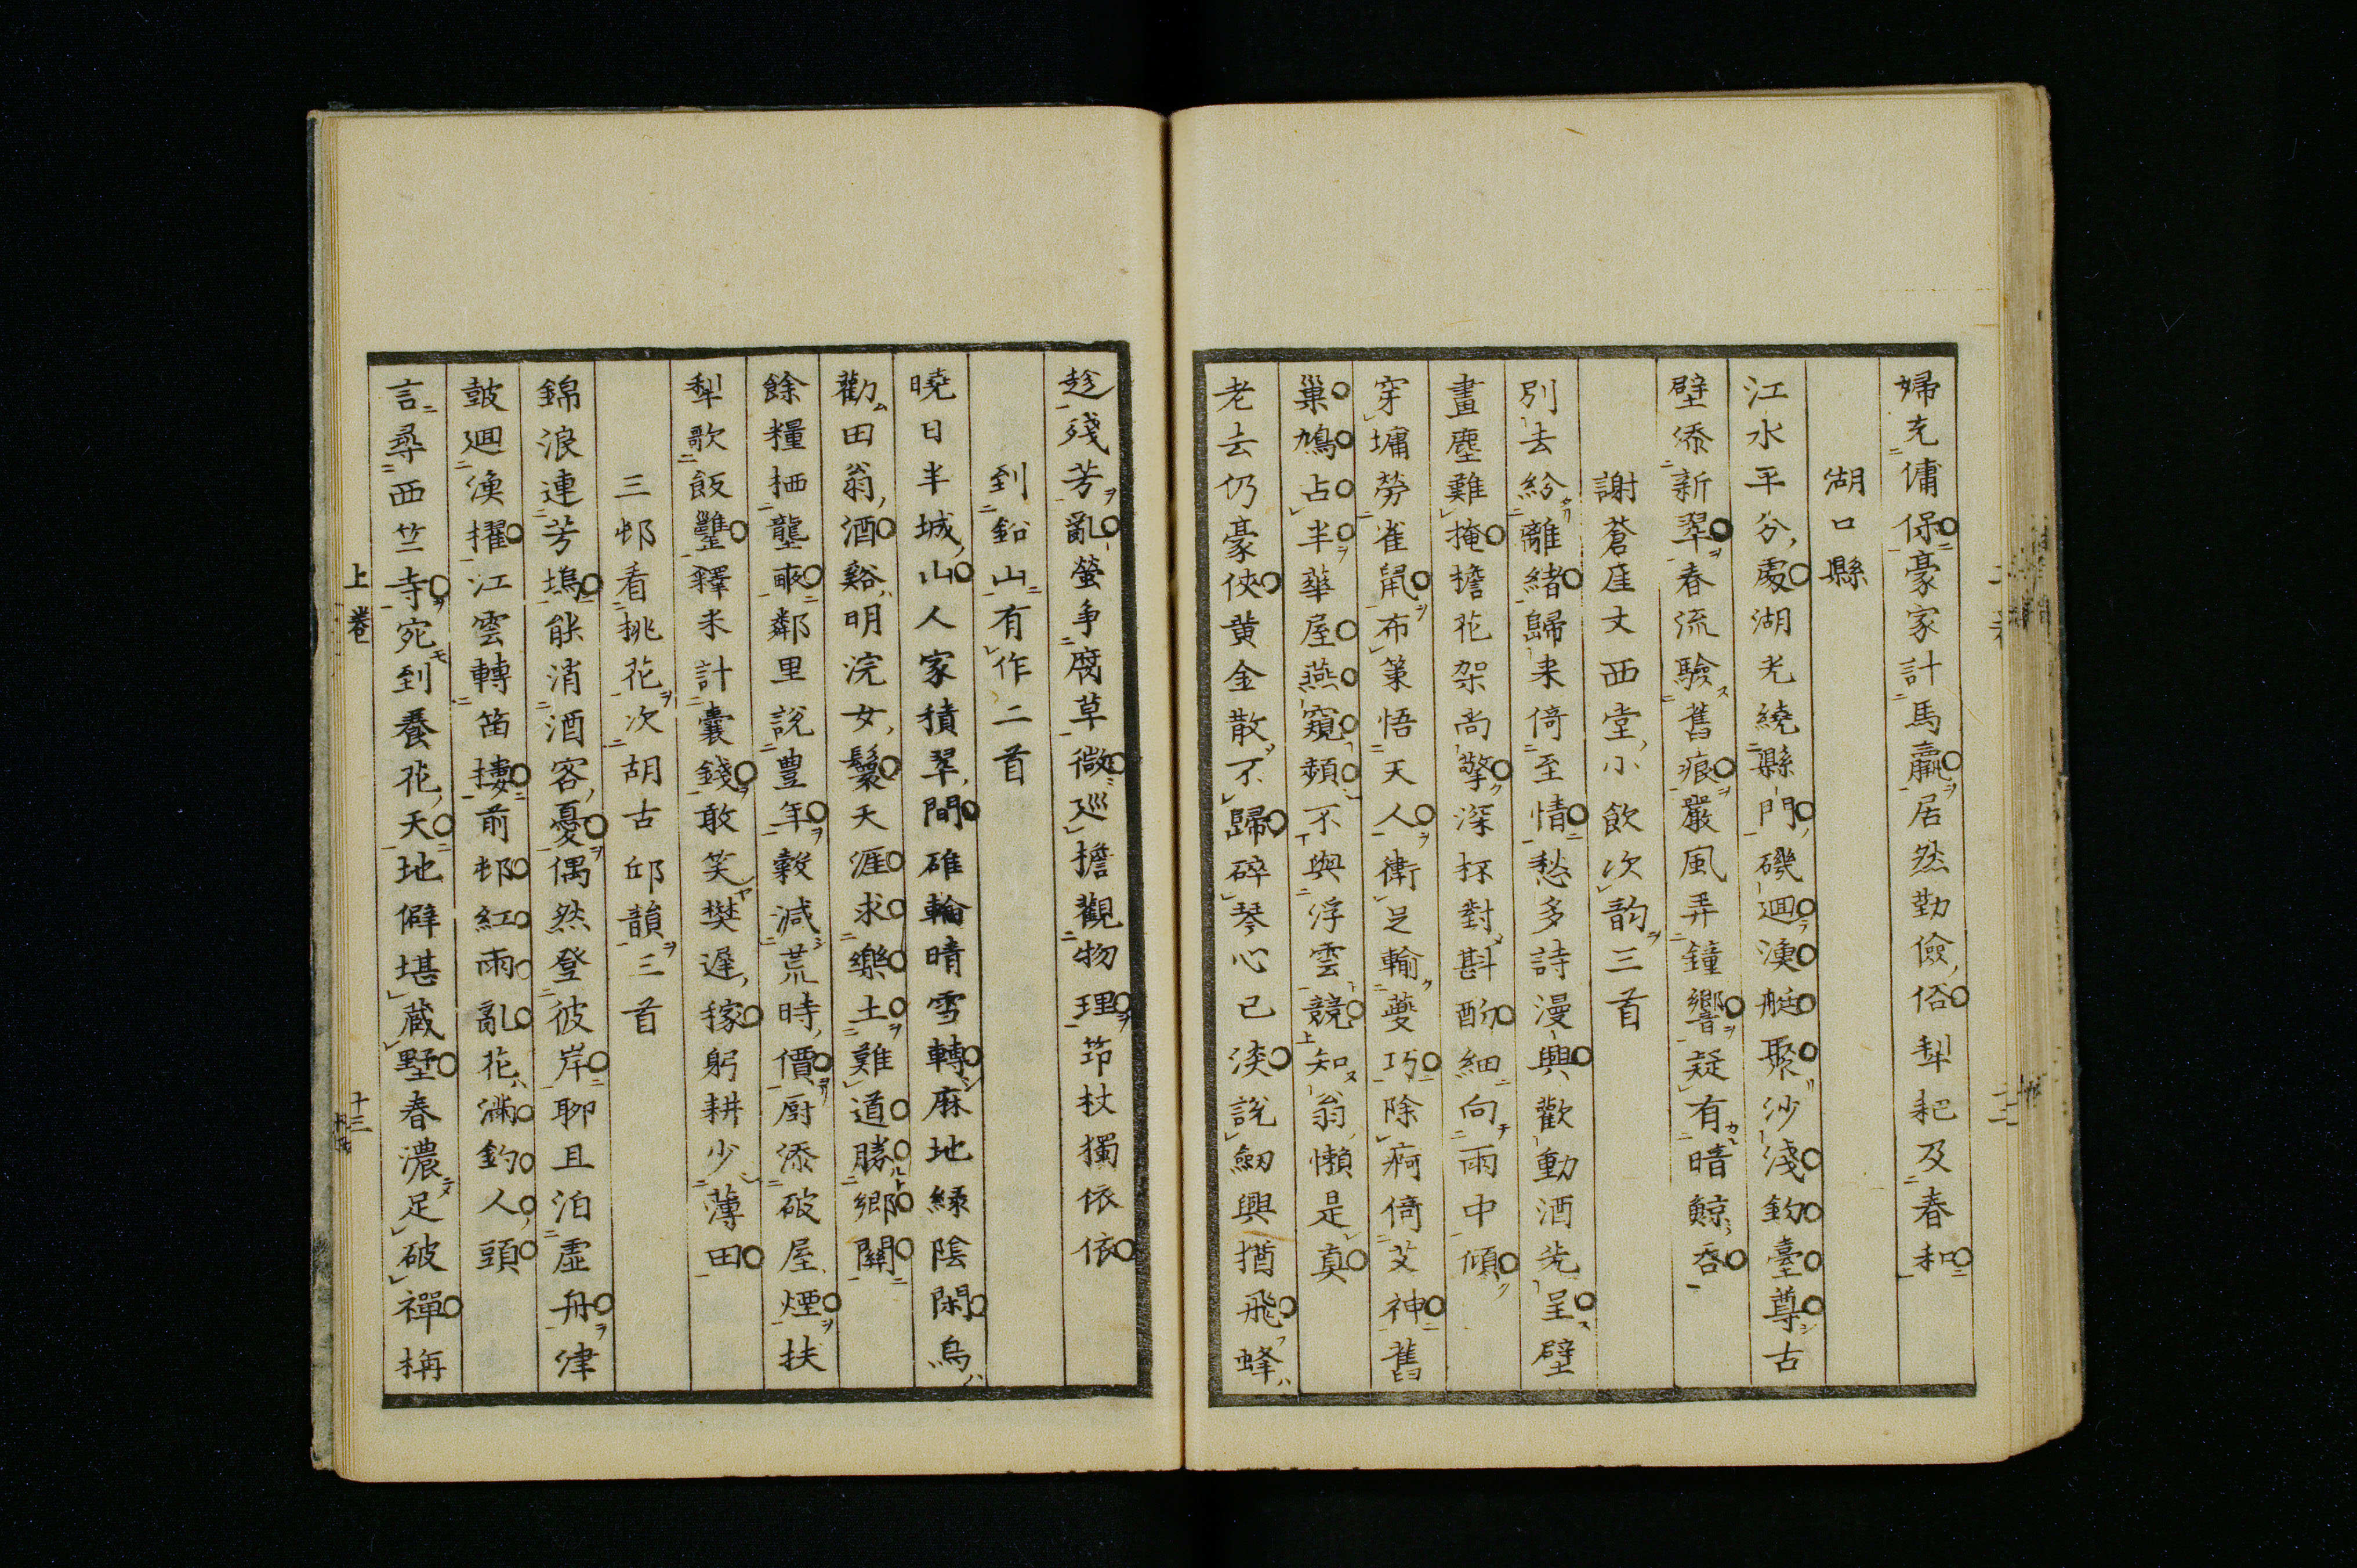 婦充傭保豪家計馬羸居然勤儉俗犁耙及春和
湖口縣
江水平分處湖光繞縣門磯迴漁艇聚沙淺釣臺尊古
壁添新翠春流驗舊痕嚴風弄鐘響疑有暗鯨吞
謝蒼厓丈西堂小飲次韵三首
別去紛離緒歸来倚至情愁多詩漫興歡動酒先呈壁
畫塵難掩檐花架尚擎深杯對斟酌細向雨中傾
穿墉勞雀鼠布策悟天人衛足輸夔巧除痾倚艾神舊
巢鳩占半華屋燕窺頻不與浮雲競知翁懶是真
老去仍豪俠黄金散不歸碎琴心已淡說劒興猶飛蜂
趁殘芳亂螢争腐草微巡檐觀物理笻杖獨依依
到鉛山有作二首
曉日半城山人家積翠間碓輪晴雪轉麻地緑陰閑鳥
勸田翁酒谿明浣女鬟天涯求樂土難道勝鄉關
餘糧栖壟畝鄰里說豊年穀減荒時價厨添破屋煙扶
犁歌飯罋釋耒計囊錢敢笑樊遲稼躬耕少薄田
三邨看挑花次胡古邱韻三首
錦浪連芳塢能消酒客憂偶然登彼岸聊且泊虛舟津
鼓迴漁擢江雲轉笛摟前邨紅雨亂花滿釣人頭
言尋西竺寺宛到養花天地僻堪蔵墅春濃足破禪栴
上卷
十三